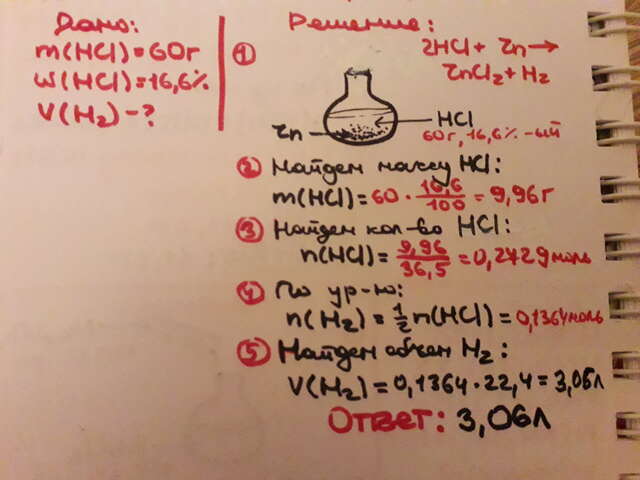 Дано:
m(HCl)=60г
W(HCl)=16,6%
V(H₂)-?
Решение:
① 2HCl + Zn →
ZnCl₂ + H₂
Zn
HCl
60г, 16,6%-ый
② Найдем массу HCl:
m(HCl) = 60 · 16,6/100 = 9,96г
③ Найдем кол-во HCl:
n(HCl) = 9,96/36,5 = 0,2729 моль
④ По ур-ю:
n(H₂) = 1/2 n(HCl) = 0,1364 моль
⑤ Найдем объем H₂:
V(H₂) = 0,1364 · 22,4 = 3,06л
Ответ: 3,06л